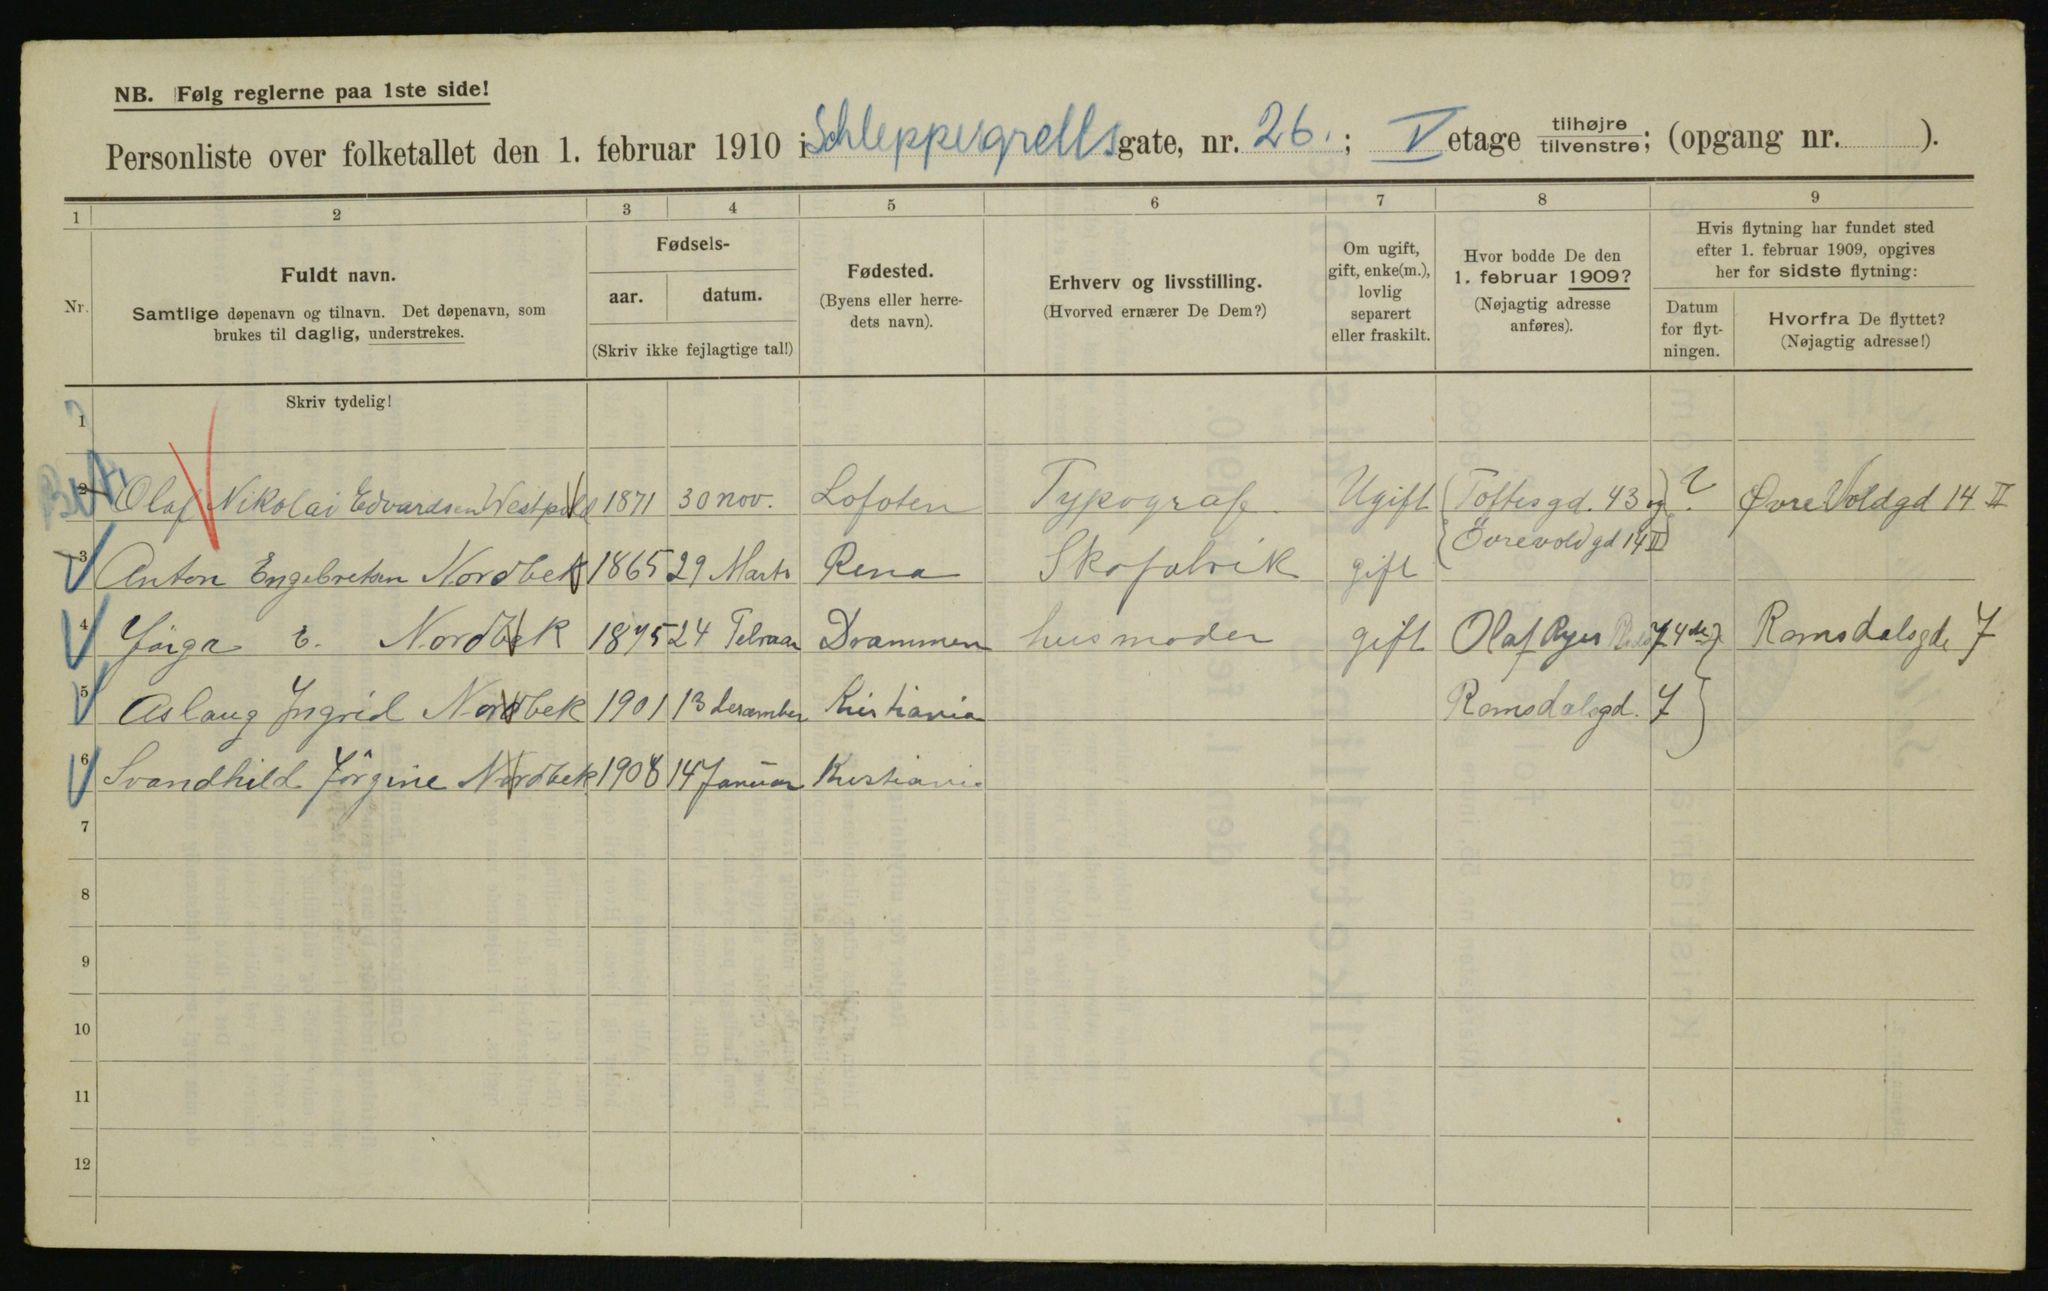 NB. Følg reglerne paa 1ste side!
Personliste over folketallet den 1. februar 1910 i Schleppegrellsgate, nr. 26. ; V etage tilhøjre tilvenstre; (opgang nr. ).
1 2 3 4 5 6 7 8 9
Nr.
Fuldt navn.
Samtlige døpenavn og tilnavn. Det døpenavn, som
brukes til daglig, understrekes.
Fødsels-
aar. datum.
(Skriv ikke fejlagtige tal!)
Fødested.
(Byens eller herre-
dets navn).
Erhverv og livsstilling.
(Hvorved ernærer De Dem?)
Om ugift,
gift, enke(m.),
lovlig
separert
eller fraskilt.
Hvor bodde De den
1. februar 1909?
(Nøjagtig adresse
anføres).
Hvis flytning har fundet sted
efter 1. februar 1909, opgives
her for sidste flytning:
Datum
for flyt-
ningen.
Hvorfra De flyttet?
(Nøjagtig adresse!)
Skriv tydelig!
1
2 Olaf Nikolai Edvardsen 1871 30 nov. Lofoten Typograf Ugift Toftesgd. 43 og ? Øvre Voldgd 14 II
Övrevoldgd 14 II
3 Anton Engebretsen Nordbek 1865 29 Marts Rena Skofabrik gift
4 E. Nordbek 1875 24 Drammen husmoder gift Olaf Ryes 7 4de Romsdalsgde 7
5 Aslaug Ingrid Nordbek 1901 13 desember Kristiania Romsdalsgd. 7
6 Svandhild Jörgine Nordbek 1908 14 Januar Kristiania
7
8
9
10
11
12